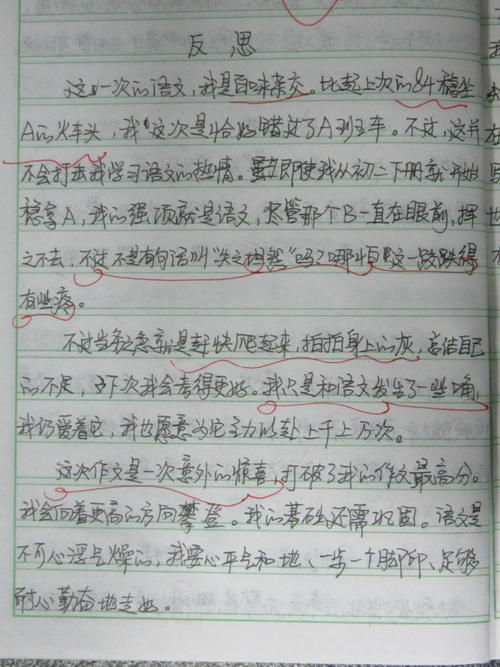 反思
这一次的语文，我是百味杂交。比起上次的84稳坐
A的火车头，我这次是恰好错过了A班车。不过，这并
不会打击我学习语文的热情。即使我从初二下册就开始
稳拿A，我的强项就是语文，尽管那个B一直在眼前，挥
之不去，不过不是有句话叫“失之坦然”吗？哪怕这一跤跌得
有些疼。
不过当务之急就是赶快爬起来，拍拍身上的灰，总结自己
的不足，下次我会考得更好。我只是和语文发生了一些口角，
我仍爱着它，我也愿意为它全力以赴上千上万次。
这次作文是一次意外的惊喜，打破了我的作文最高分。
我会向着更高的方向攀登。我的基础还需巩固。语文是
不可心浮气燥的，我要心平气和地、一步一个脚印、足够
耐心勤奋地走好。